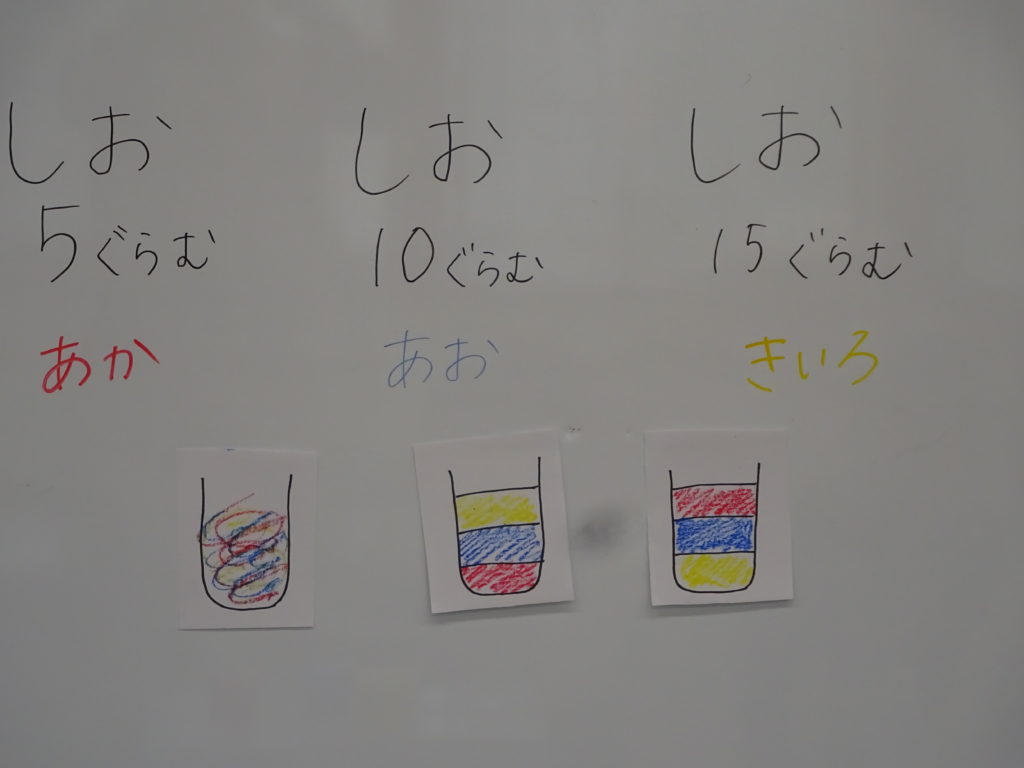 しお
5ぐらむ
あか
しお
10ぐらむ
あお
しお
15ぐらむ
きいろ